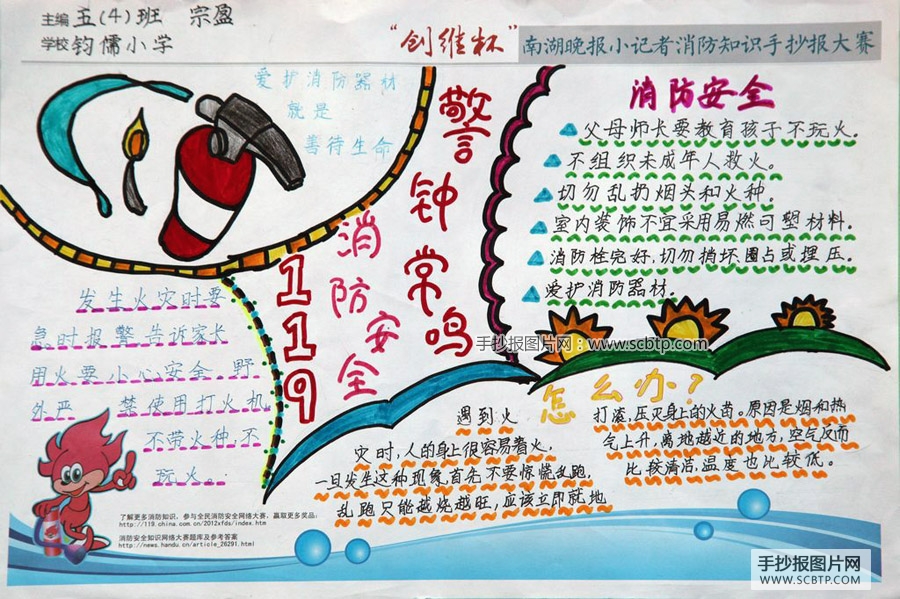 主编 五(4)班 宗盈
学校 钧儒小学
“创维杯”南湖晚报小记者消防知识手抄报大赛
爱护消防器材
就是
善待生命
警钟常鸣
119
消防安全
消防安全
父母师长要教育孩子不玩火。
不组织未成年人救火。
切勿乱扔烟头和火种。
室内装饰不宜采用易燃可塑材料。
消防栓完好,切勿损坏、圈占或埋压。
爱护消防器材.
发生火灾时要
急时报警告诉家长
用火要小心安全,野
外严 禁使用打火机
不带火种,不
玩火。
手抄报图片网:www.scbtp.com
怎么办?
遇到火
灾时,人的身上很容易着火.
一旦发生这种现象,首先不要惊慌乱跑,
乱跑只能越烧越旺,应该立即就地
打滚,压灭身上的火苗。原因是烟和热
气上升,离地越近的地方,空气反而
比较清洁,温度也比较低。
了解更多消防知识,参与全民消防安全网络大赛,赢取更多奖品:
http://119.china.com.cn/2012xfds/index.htm
消防安全知识网络大赛题库及参考答案
http://news.handu.cn/article_26291.html
手抄报图片网
WWW.SCBTP.COM